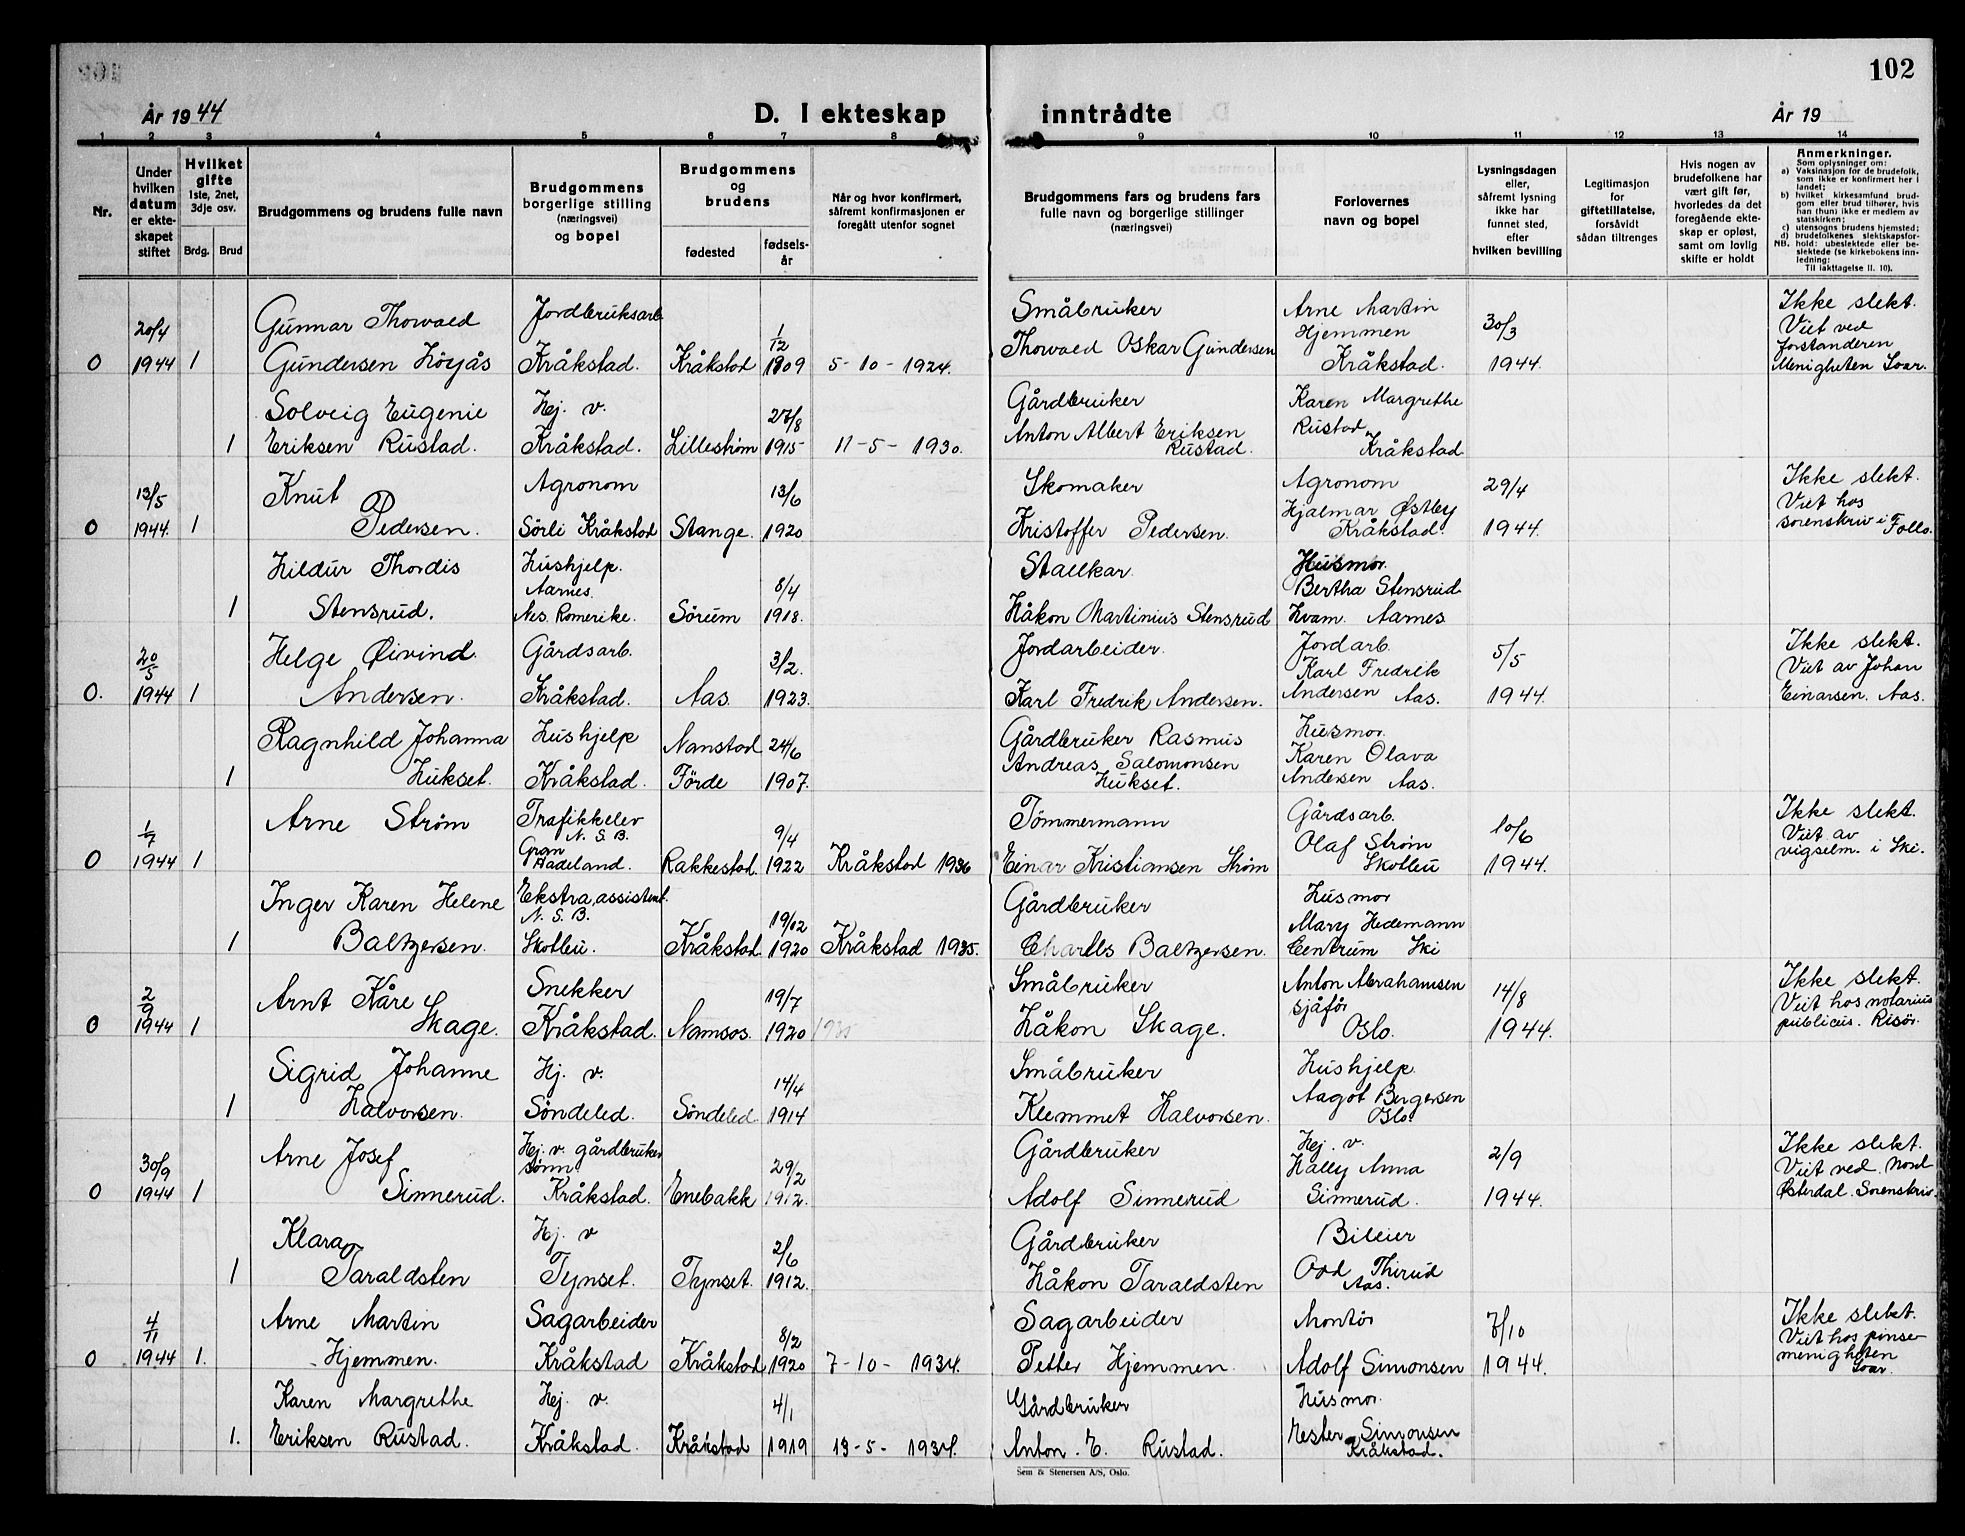 102
År 1944
D. I ekteskap inntrådte
År 19
1 2 3 4 5 6 7 8 9 10 11 12 13 14
Nr.
Under hvilken datum er ekteskapet stiftet
Hvilket gifte 1ste, 2net, 3dje osv.
Brdg. Brud
Brudgommens og brudens fulle navn
Brudgommens borgerlige stilling (næringsvei) og bopel
Brudgommens og brudens
fødested
fødselsår
Når og hvor konfirmert, såfremt konfirmasjonen er foregått utenfor sognet
Brudgommens fars og brudens fars fulle navn og borgerlige stillinger (næringsvei)
Forlovernes navn og bopel
Lysningsdagen eller, såfremt lysning ikke har funnet sted, efter hvilken bevilling
Legitimasjon for giftetillatelse, forsåvidt sådan tiltrenges
Hvis nogen av brudefolkene har vært gift før, hvorledes da det foregående ekteskap er opløst, samt om lovlig skifte er holdt
Anmerkninger.
Som oplysninger om:
a) Vaksinasjon for de brudefolk, som ikke er konfirmert her i landet;
b) hvilket kirkesamfund brudgom eller brud tilhører, hvis han (hun) ikke er medlem av statskirken;
c) utensogns brudens hjemsted;
d) brudefolkenes slektskapsforhold: ubeslektede eller beslektede (se kirkebokens innledning;
NB. Til iakttagelse II. 10).
0 20/4 1944 1 Gunnar Thorvald Gundersen Høyås Jordbruksarb. Kråkstad. Kråkstad 1/12 1909 5-10-1924. Småbruker Thorvald Oskar Gundersen Arne Martin Hjemmen Kråkstad. 30/3 1944. Ikke slekt. Viet ved forstanderen Menigheten Soar.
1 Solveig Eugenie Eriksen Rustad. Hj. v. Kråkstad. Lillestrøm 27/8 1915 11-5-1930. Gårdbruker Anton Albert Eriksen Rustad. Karen Margrethe Rustad Kråkstad
0 13/5 1944. 1 Knut Pedersen. Agronom Sörli Kråkstad Stange. 13/6 1920 Skomaker Kristoffer Pedersen. Agronom Hjalmar Østby Kråkstad. 29/4 1944. Ikke slekt. Viet hos sorenskriv i Follo.
1 Hildur Thordis Stensrud. Hushjelp. Aarnes. Nes. Romerike. Sörum 8/4 1918. Stallkar. Håkon Martinius Stensrud Husmor. Bertha Stensrud Hvam. Aarnes
0. 20/5 1944 1 Helge Øivind Andersen. Gårdsarb. Kråkstad. Aas. 3/2. 1923. Jordarbeider. Karl Fredrik Andersen. Jordarb. Karl Fredrik Andersen Aas. 5/5 1944. Ikke slekt. Viet av Johan Einarsen. Aas.
1 Ragnhild Johanna Hukset. Hushjelp Kråkstad. Nanstad Förde 24/6 1907. Gårdbruker Rasmus Andreas Salomonsen Hukset. Husmor. Karen Olava Andersen Aas.
0 1/7 1944 1 Arne Strøm Trafikkelev N. S. B. Gran Hadeland. Rakkestad. 9/4 1922 Kråkstad 1936 Tömmermann Einar Kristiansen Strøm Gårdsarb. Olaf Strøm Skotbu 10/6 1944. Ikke slekt. Viet av vigselm. i Ski.
1 Inger Karen Helene Baltzersen. Ekstra, assistent. N. S. B. Skotbu. Kråkstad. 19/12 1920 Kråkstad 1935. Gårdbruker Charles Baltzersen. Husmor Mary Hedemann Centrum Ski
0 2/9 1944 1 Arnt Kåre Skage. Snekker Kråkstad. Namsos. 19/7 1920 1935 Småbruker Håkon Skage. Anton Abrahamsen sjåför Oslo. 14/8 1944. Ikke slekt. Viet hos notarius publicus. Risör.
1 Sigrid Johanne Halvorsen. Hj. v. Söndeled. Söndeled. 14/4 1914 Småbruker Klemmet Halvorsen. Hushjelp. Aagot Bergersen Oslo.
0 30/9 1944 1 Arne Josef Sinnerud. Hj. v. gårdbruker sønn Kråkstad. Enebakk 29/2 1912. Gårdbruker Adolf Sinnerud Hj. v. Hally Anna Sinnerud. 2/9 1944. Ikke slekt. Viet ved. Nord Østerdal. Sorenskriv.
1 Klara Taraldsten Hj. v Tynset. Tynset. 2/6 1912. Gårdbruker Håkon Taraldsten Bileier Odd Thirud Aas.
0 4/11 1944 1. Arne Martin Hjemmen. Sagarbeider Kråkstad Kråkstad 8/2 1920 7-10-1934. Sagarbeider Petter Hjemmen. Montör Adolf Simonsen 7/10 1944. Ikke slekt. Viet hos pinsemenigheten Soar.
1. Karen Margrethe Eriksen Rustad. Hj. v. Kråkstad. Kråkstad 4/1 1919 13-5-1934. Gårdbruker Anton. E. Rustad. Husmor. Hester Simonsen Kråkstad.
Sem & Stenersen A/S, Oslo.